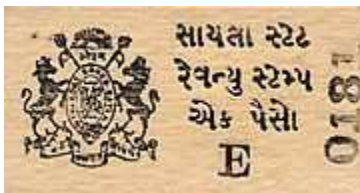 સાયલા સ્ટેટ
રેવન્યુ સ્ટેમ્પ
એક પૈસો
E
0181